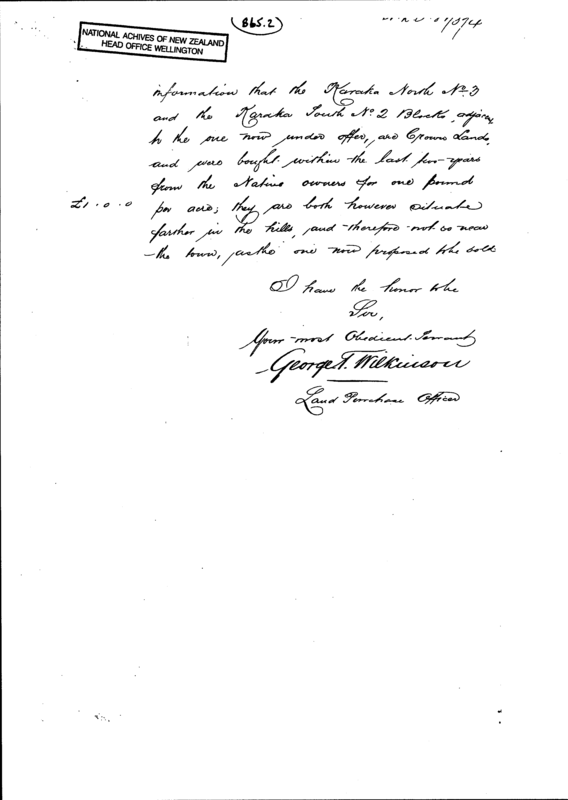 B65.2
NATIONAL ACHIVES OF NEW ZEALAND
HEAD OFFICE WELLINGTON
information that the Karaka North No. 3
and the Karaka South No. 2 Blocks, adjacent
to the one now under offer, are Crown Lands,
and were bought within the last few years
from the Native owners for one pound
£1.0.0 per acre; they are both however situate
farther in the hills, and therefore not so near
the town, as the one now proposed to be sold
I have the honor to be
Sir,
Your most Obedient Servant
George T. Wilkinson
Land Purchase Officer